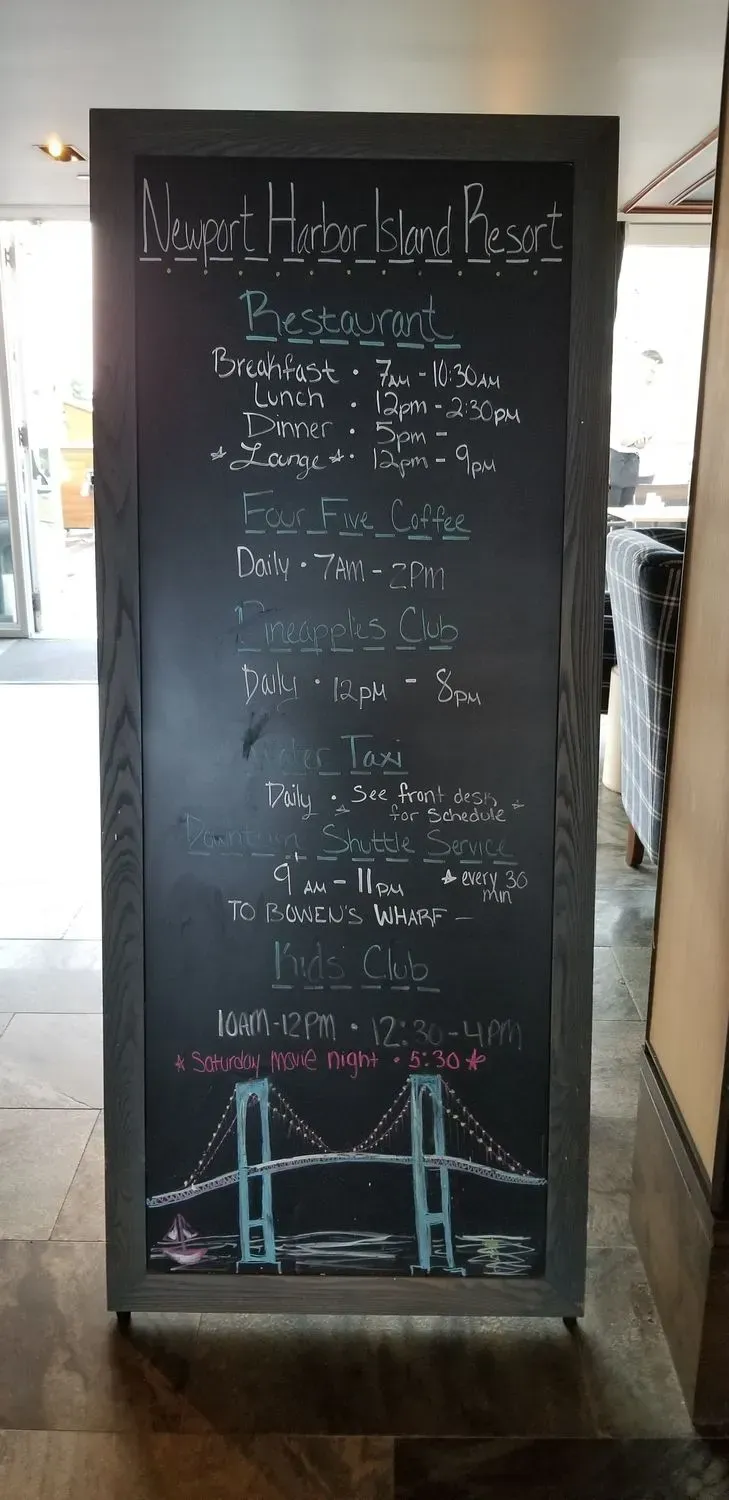 Newport Harbor Island Resort
Restaurant
Breakfast • 7AM - 10:30AM
Lunch • 12pm - 2:30pm
Dinner • 5pm -
*Lounge* • 12pm - 9pm
Four Five Coffee
Daily • 7AM - 2PM
Pineapples Club
Daily • 12pm - 8pm
Water Taxi
Daily • *See front desk
for Schedule*
Downtown Shuttle Service
9 AM - 11PM *every 30
min
TO BOWEN'S WHARF -
Kids Club
10AM-12PM • 12:30-4PM
*Saturday movie night • 5:30*